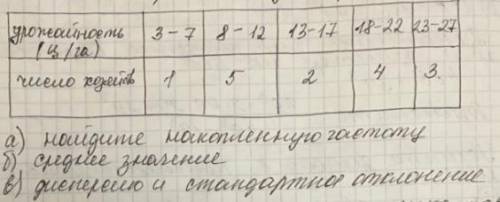 урожайность (ц/га) 3-7 8-12 13-17 18-22 23-27
число хозяйств 1 5 2 4 3.
а) найдите накопленную частоту
б) среднее значение
в) дисперсию и стандартное отклонение